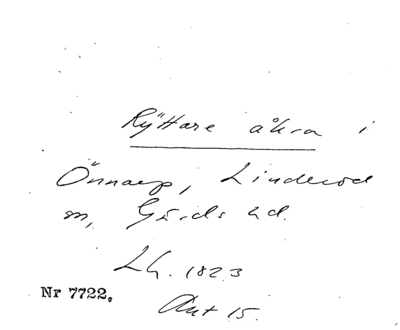 Ryttare åkra i
Önnarp, Linderöd
sn, Gärds hd.
Lh. 1823
Nr 7722.
Akt 15.